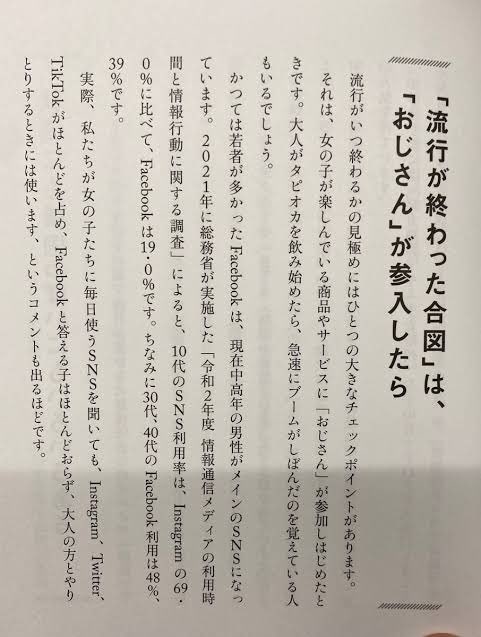 「流行が終わった合図」は、
「おじさん」が参入したら
流行がいつ終わるかの見極めにはひとつの大きなチェックポイントがあります。
それは、女の子が楽しんでいる商品やサービスに「おじさん」が参加しはじめたと
きです。大人がタピオカを飲み始めたら、急速にブームがしぼんだのを覚えている人
もいるでしょう。
かつては若者が多かったFacebookは、現在中高年の男性がメインのSNSになっ
ています。2021年に総務省が実施した「令和2年度 情報通信メディアの利用時
間と情報行動に関する調査」によると、10代のSNS利用率は、Instagramの69・
0%に比べて、Facebookは19・0%です。ちなみに30代、40代のFacebook利用は48%、
39%です。
実際、私たちが女の子たちに毎日使うSNSを聞いても、Instagram、Twitter、
TikTokがほとんどを占め、Facebookと答える子はほとんどおらず、大人の方とやり
とりするときには使います、というコメントも出るほどです。